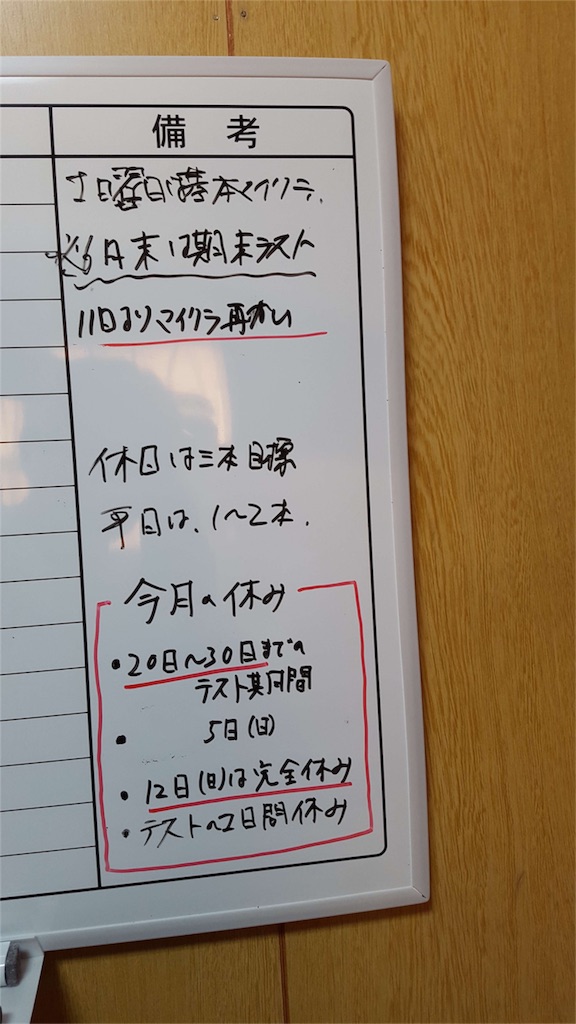 備考
土日曜日は基本マイクラ.
※6月末は期末テスト
11日よりマイクラ再かい
休日は三本目標
平日は、1〜2本.
今月の休み
・20日〜30日までの
テスト期間
・5日(日)
・12日(日)は完全休み
・テストの2日間休み